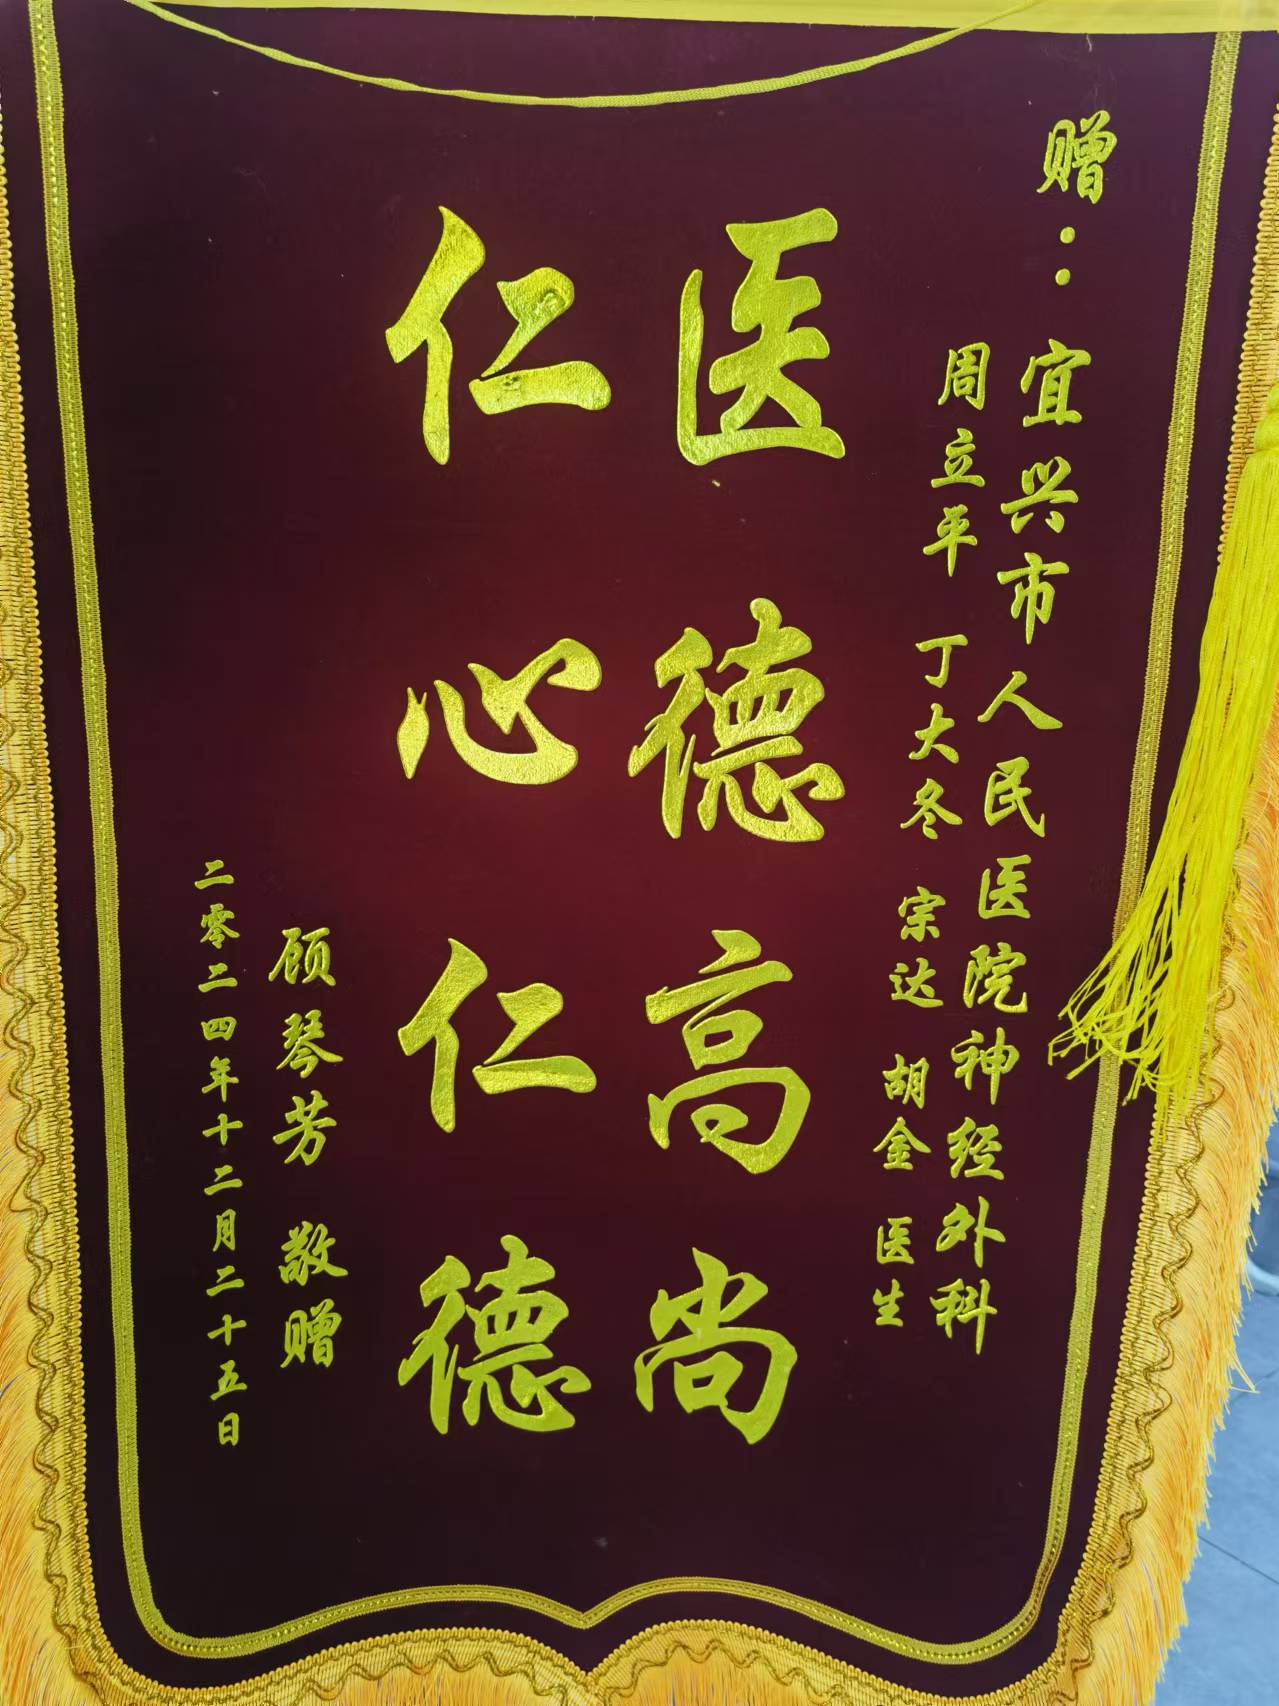 赠：宜兴市人民医院神经外科
周立平 丁大冬 宗达 胡金 医生
医德高尚
仁心仁德
顾琴芳 敬赠
二零二四年十二月二十五日